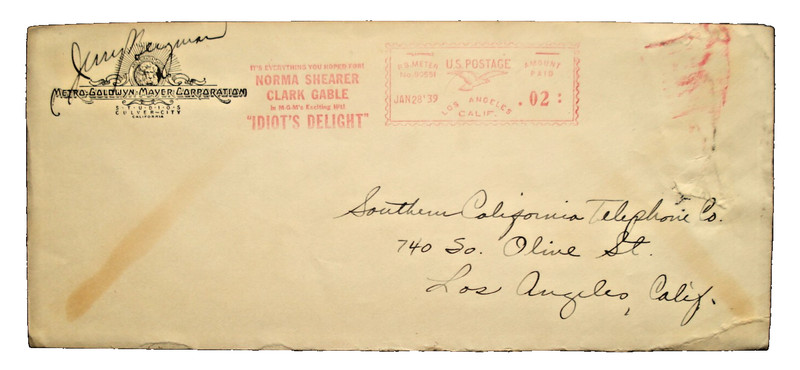 Jerry Bergman
METRO-GOLDWYN-MAYER CORPORATION
STUDIOS
CULVER-CITY
CALIFORNIA
IT'S EVERYTHING YOU HOPED FOR!
NORMA SHEARER
CLARK GABLE
in M-G-M's Exciting Hit!
"IDIOT'S DELIGHT"
U.S. POSTAGE
AMOUNT
PAID
JAN 28 '39
LOS ANGELES
CALIF.
.02
Southern California Telephone Co.
740 So. Olive St.
Los Angeles, Calif.